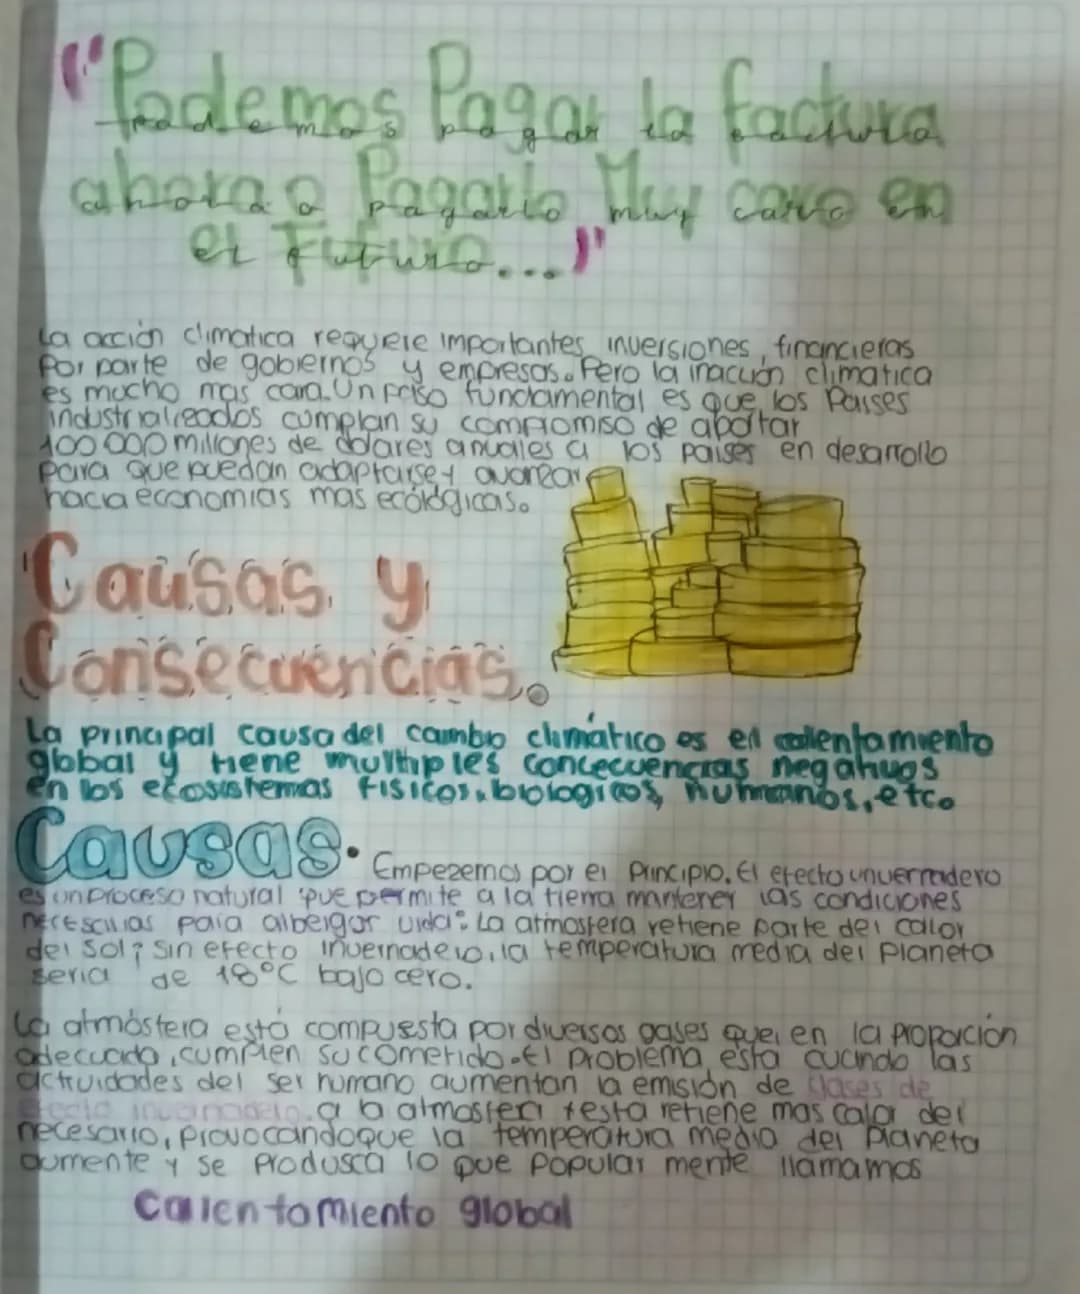 "Podemos Pagar la factura
ahora o Pagarlo Muy caro en
el Futuro..."
La acción climatica requiere importantes inversiones, financieras
Por parte de gobiernos y empresas. Pero la inacción climatica
es mucho mas cara. Un paso fundamental es que los Paises
industrialeados cumplan su compromiso de aportar
100 000 millones de dolares anuales a los paises en desarrollo
para que puedan adaptarse y avanzar
hacia economias mas ecólógicas.
Causas y
Consecuencias.
La principal causa del cambio climático es el calentamiento
global y tiene multiples concecuencias negativas
en los ecosistemas fisicos, biologicos, humanos, etc.
Causas. Empezemos por el Principio. El efecto invernadero
es un proceso natural que permite a la tierra mantener las condiciones
necesarias para albergar vida: La atmosfera retiene parte del calor
del sol; sin efecto invernadero, la temperatura media del Planeta
seria de 18°C bajo cero.
La atmósfera está compuesta por diversos gases que, en la proporción
adecuada, cumplen su cometido. El problema esta cuando las
actividades del ser humano aumentan la emisión de Gases de
efecto invernadero a la atmosfera y esta retiene mas calor del
necesario, provocando que la temperatura media del Planeta
aumente y se Produsca lo que popular mente llamamos
calentamiento global